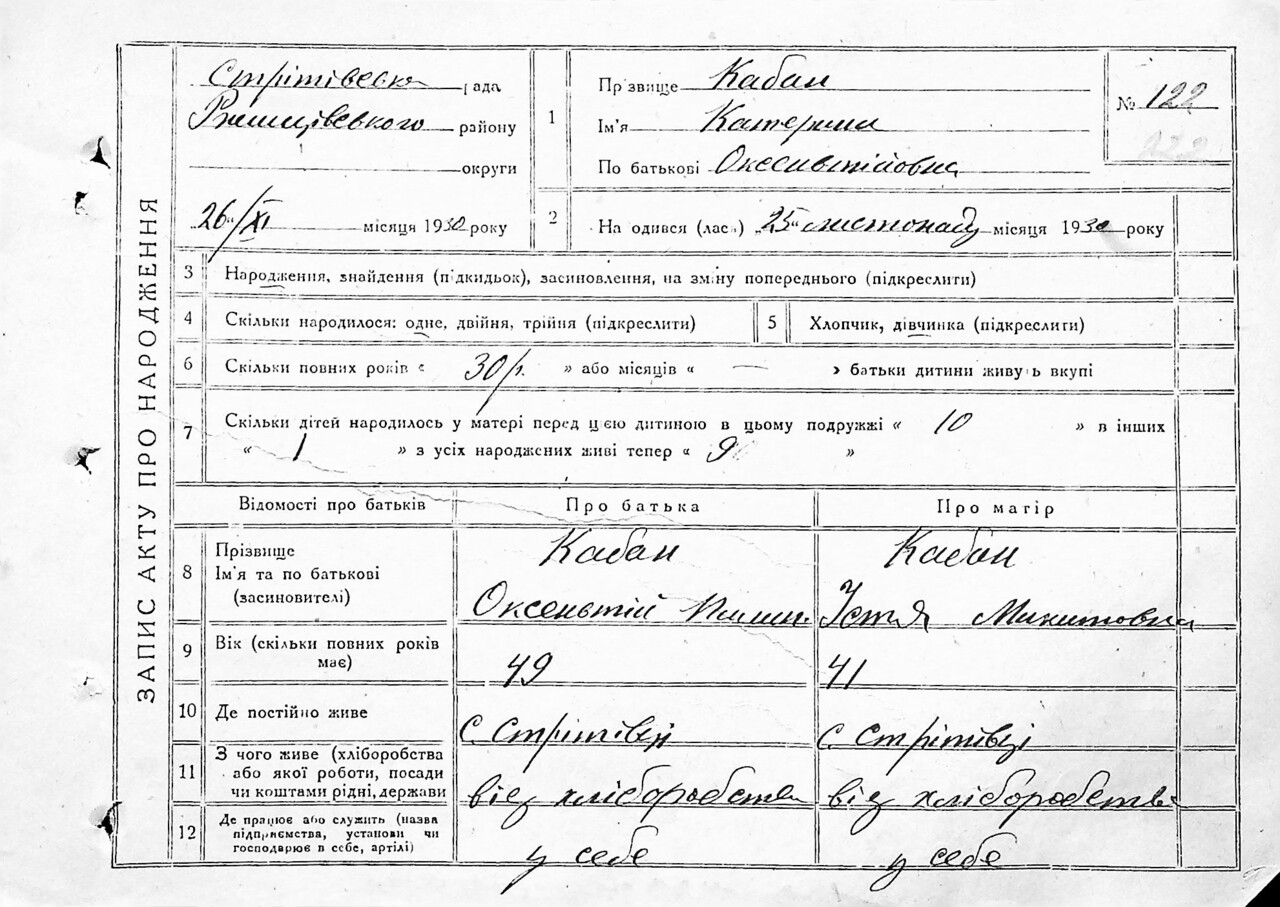 ЗАПИС АКТУ ПРО НАРОДЖЕННЯ
Стрітівська рада
Ржищівського району
округи
26/XI місяця 1930 року
1 Прізвище Кабан
Ім'я Катерина
По батькові Оксентійовна
№ 122
2 На одився (лась) „25" листопад місяця 1930 року
3 Народження, знайдення (підкидьок), засиновлення, на зміну попереднього (підкреслити)
4 Скільки народилося: одне, двійня, трійня (підкреслити) 5 Хлопчик, дівчинка (підкреслити)
6 Скільки повних років « 30 р. » або місяців « — » батьки дитини живуть вкупі
7 Скільки дітей народилось у матері перед цією дитиною в цьому подружжі « 10 » в інших
« 1 » з усіх народжених живі тепер « 9 »
Відомості про батьків Про батька Про матір
8 Прізвище Кабан Кабан
Ім'я та по батькові
(засиновителі) Оксентій Пилип. Устя Микитовна
9 Вік (скільки повних років
має) 49 41
10 Де постійно живе с. Стрітівці с. Стрітівці
11 З чого живе (хліборобства
або якої роботи, посади
чи коштами рідні, держави від хліборобства від хліборобства
12 Де працює або служить (назва
підприємства, установи чи
господарює в себе, артілі) у себе у себе